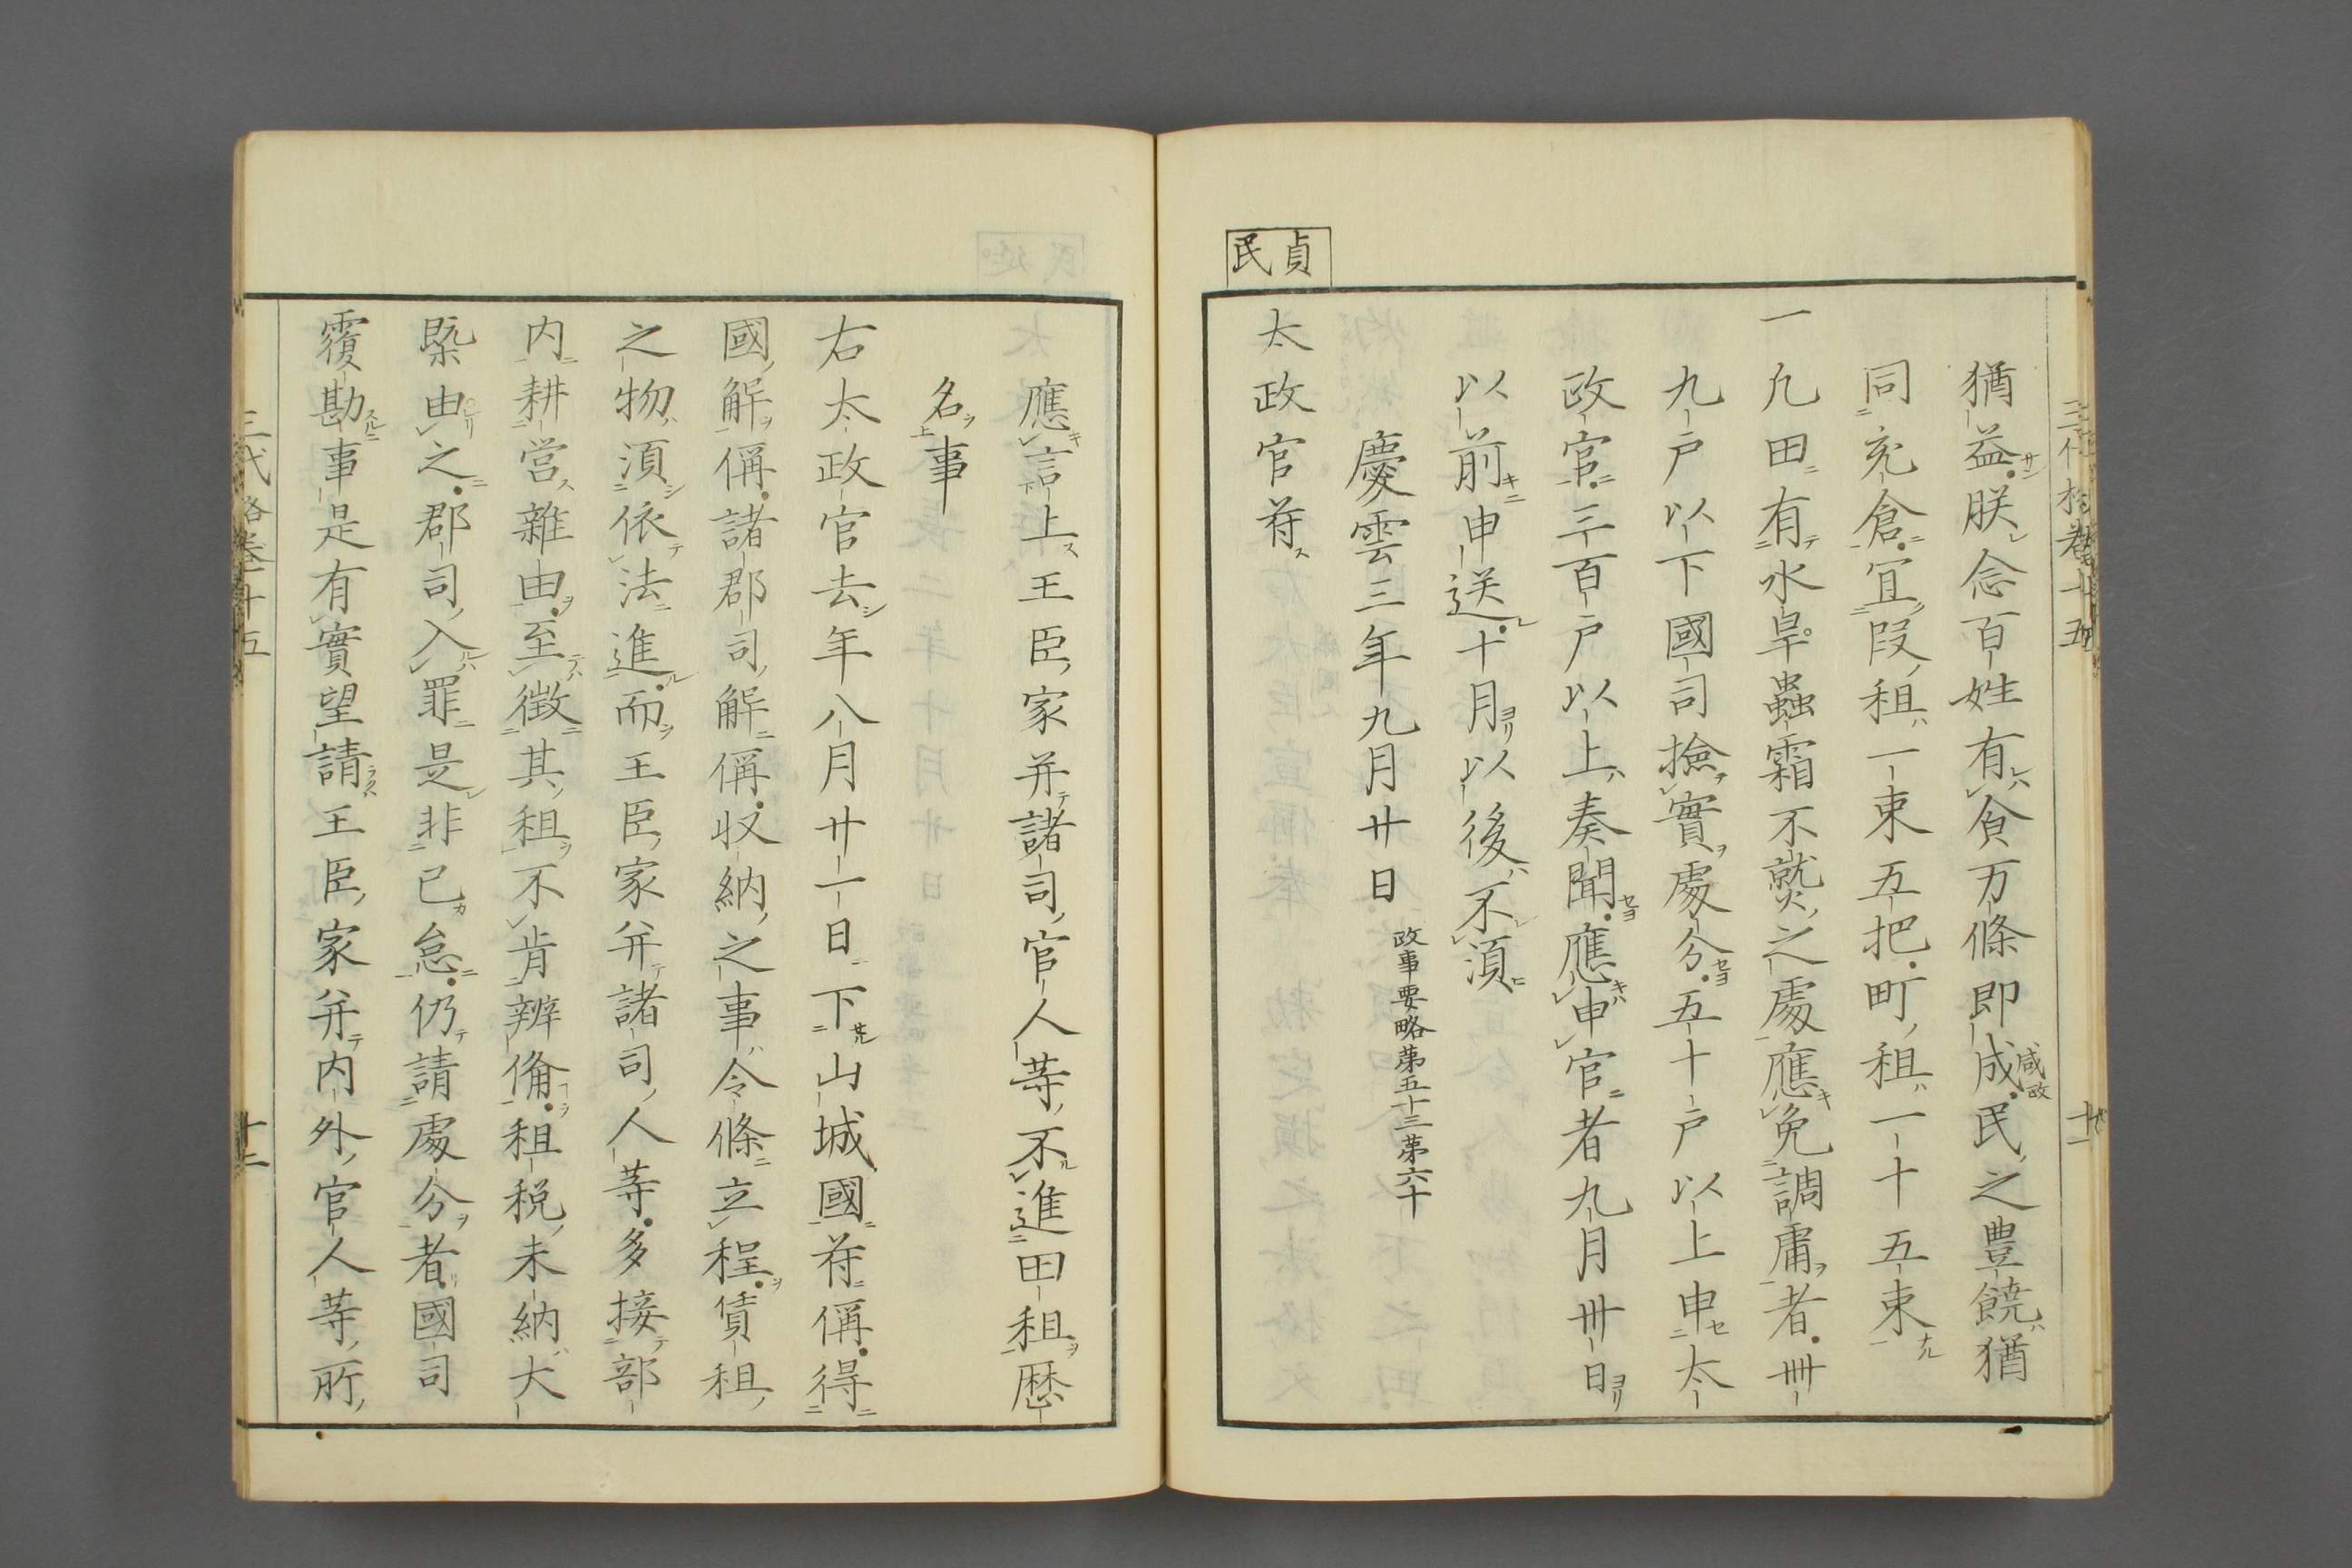 貞民
猶益朕念百姓有食万條即成民之豊饒猶
咸政
同充倉宜段租一束五把町租一十五束
一凡田有水旱蟲霜不熟之處應免調庸者卌
九戸以下國司撿實處分五十戸以上申太
政官三百戸以上奏聞應申官者九月卅日
以前申送十月以後不湏
慶雲三年九月廿日 政事要略第五十三第六十
太政官苻
應言上王臣家并諸司官人等不進田租歴
名事
右太政官去年八月廿一日下山城國苻偁得
國解偁諸郡司解偁収納之事令條立程賃租
之物湏依法進而王臣家并諸司人等多接部
内耕営雜由至徴其租不肯辨俻租税未納大
槩由之郡司入罪是非已怠仍請處分者國司
覆勘事是有實望請王臣家并内外官人等所
三代格巻十五
十二